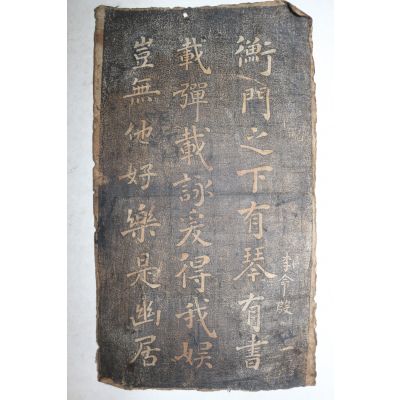 衡門之下有琴有書
載彈載詠爰得我娛
豈無他好樂是幽居